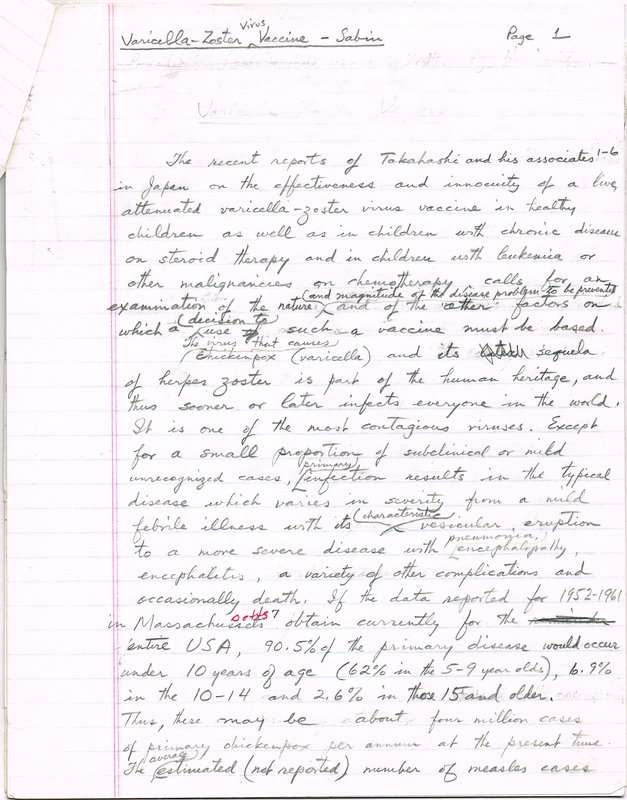 Varicella-Zoster Virus Vaccine - Sabin Page 1
The recent reports of Takahashi and his associates 1-6
in Japan on the effectiveness and innocuity of a live,
attenuated varicella-zoster virus vaccine in healthy
children as well as in children with chronic disease
on steroid therapy and in children with leukemia or
other malignancies on chemotherapy calls for an
examination of the nature (and magnitude of the disease problem to be prevented) and of the other factors on
which a (decision to) use such a vaccine must be based.
The virus that causes
chickenpox (varicella) and its sequela
of herpes zoster is part of the human heritage, and
thus sooner or later infects everyone in the world.
It is one of the most contagious viruses. Except
for a small proportion of subclinical or mild
unrecognized cases, primary infection results in the typical
disease which varies in severity from a mild
febrile illness with its (characteristic) vesicular eruption
to a more severe disease with pneumonia, encephalopathy,
encephalitis, a variety of other complications and
occasionally death. If the data reported for 1952-1961
in Massachusetts 7 obtain currently for the
entire USA, 90.5% of the primary disease would occur
under 10 years of age (62% in the 5-9 year olds), 6.9%
in the 10-14 and 2.6% in those 15 and older.
Thus, there may be about four million cases
of primary chickenpox per annum at the present time.
The average estimated (not reported) number of measles cases